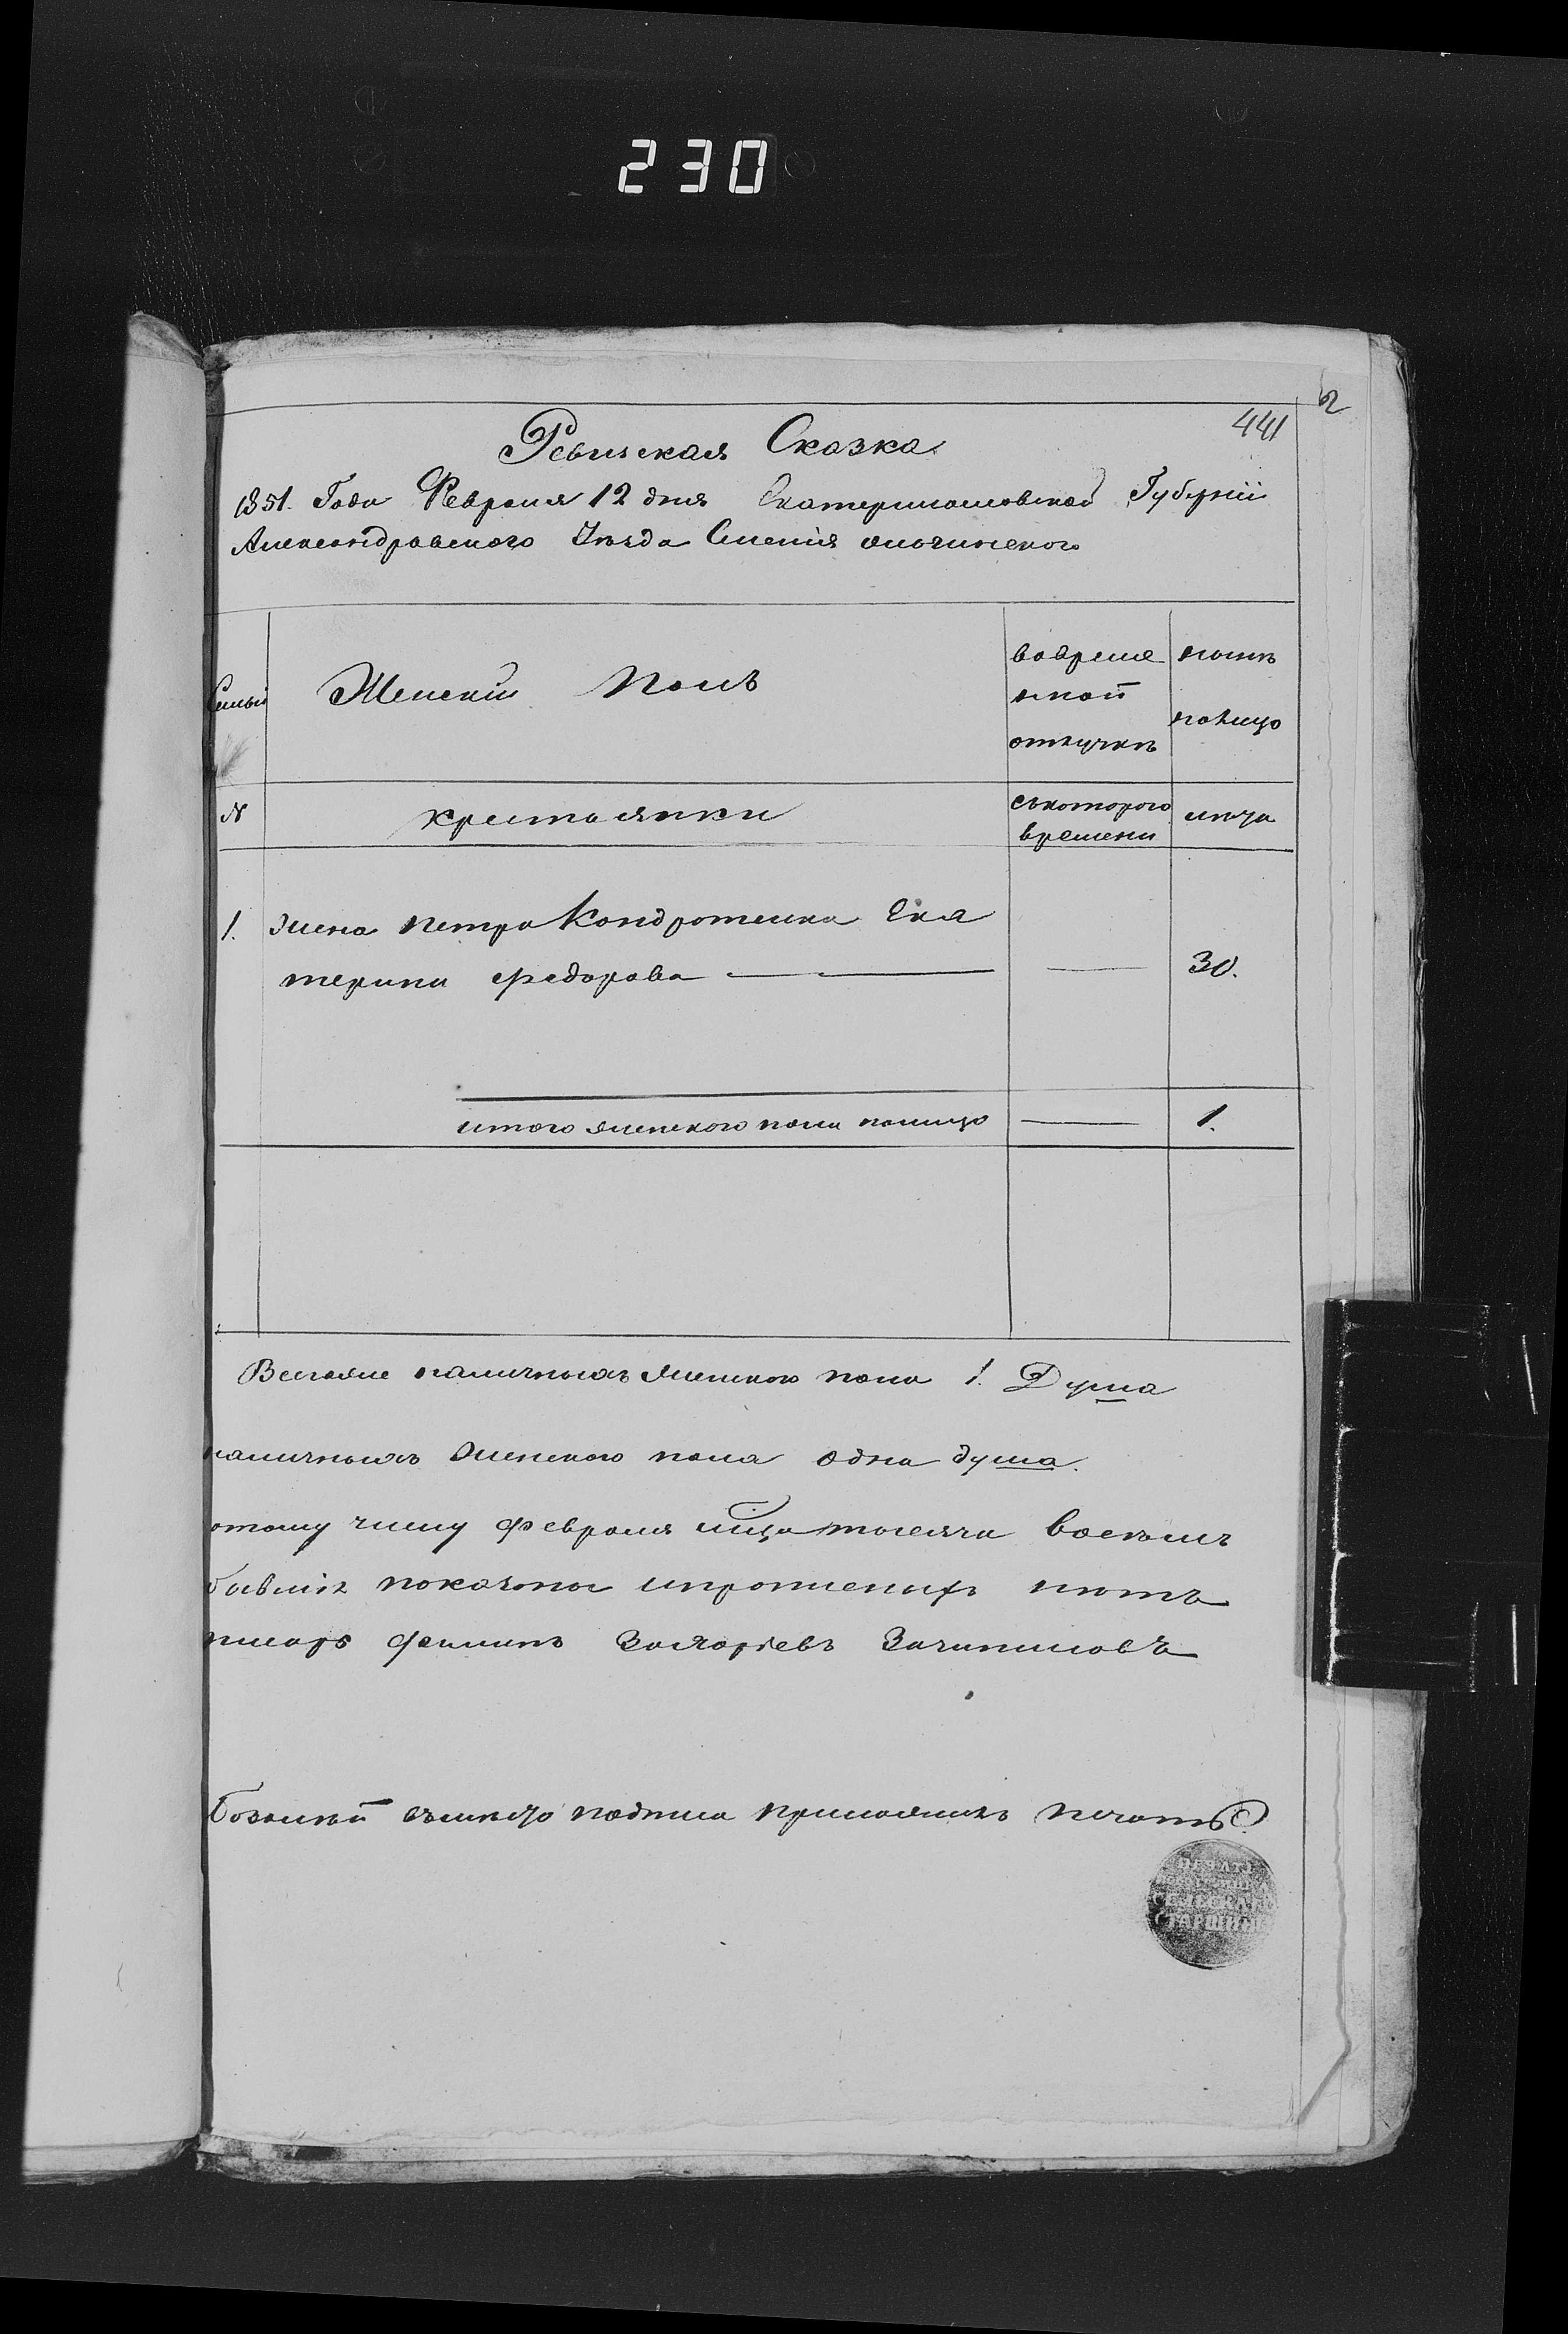 230
2
441
Ревизская Сказка
1851. Года Февраля 12 дня Екатеринославской Губернии
Александравского Уѣзда Сѣленія
Семьи
Женскій Полъ
вовреме
нной
отлучкѣ
нынѣ
налицо
N
крестьянки
съкоторого
времени
лѣта
1. Жена петра Кондротенка Ека
терина федорава
30.
итого женского пола налицо
1.
Всегоже наличныхъ женского пола 1. Душа
наличныхъ женского пола одна душа.
Февраля тысяча восемъ
показаны ипрописныхъ нѣтъ
писарь
подписа приложилъ печать
ПЕЧАТЬ
СЕЛЬСКАГО
СТАРШИНЫ